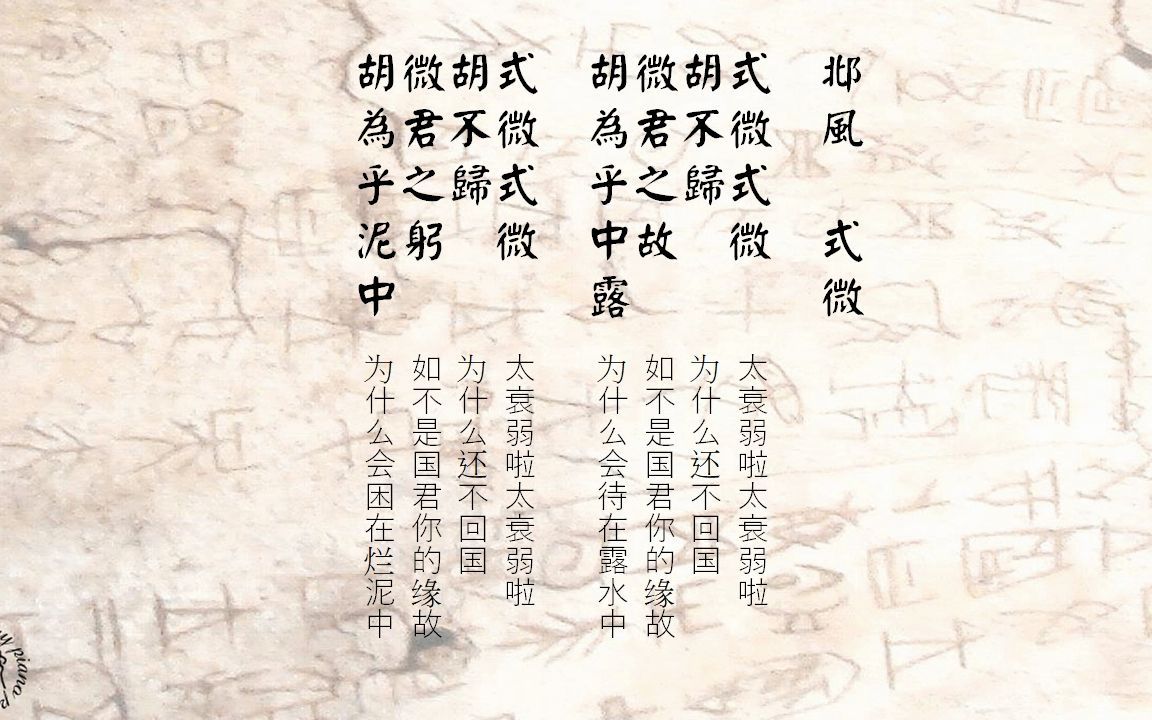 邶風 式微
式微式微
胡不歸
微君之故
胡為乎中露
太衰弱啦太衰弱啦
为什么还不回国
如不是国君你的缘故
为什么会待在露水中
式微式微
胡不歸
微君之躬
胡為乎泥中
太衰弱啦太衰弱啦
为什么还不回国
如不是国君你的缘故
为什么会困在烂泥中
piano